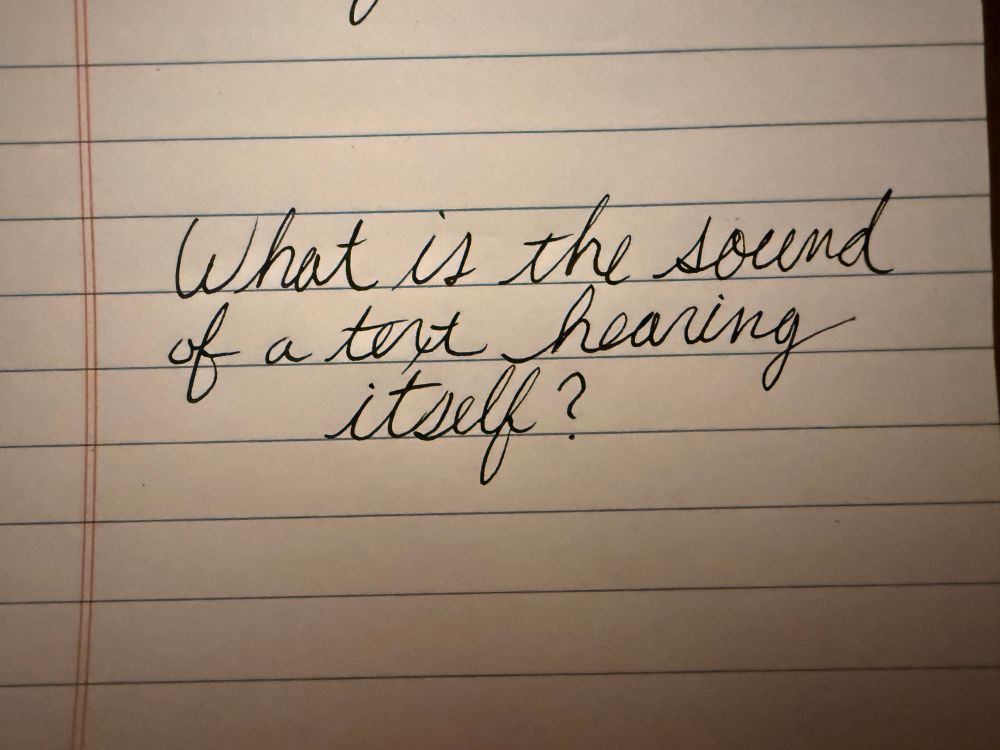 What is the sound
of a text hearing
itself?